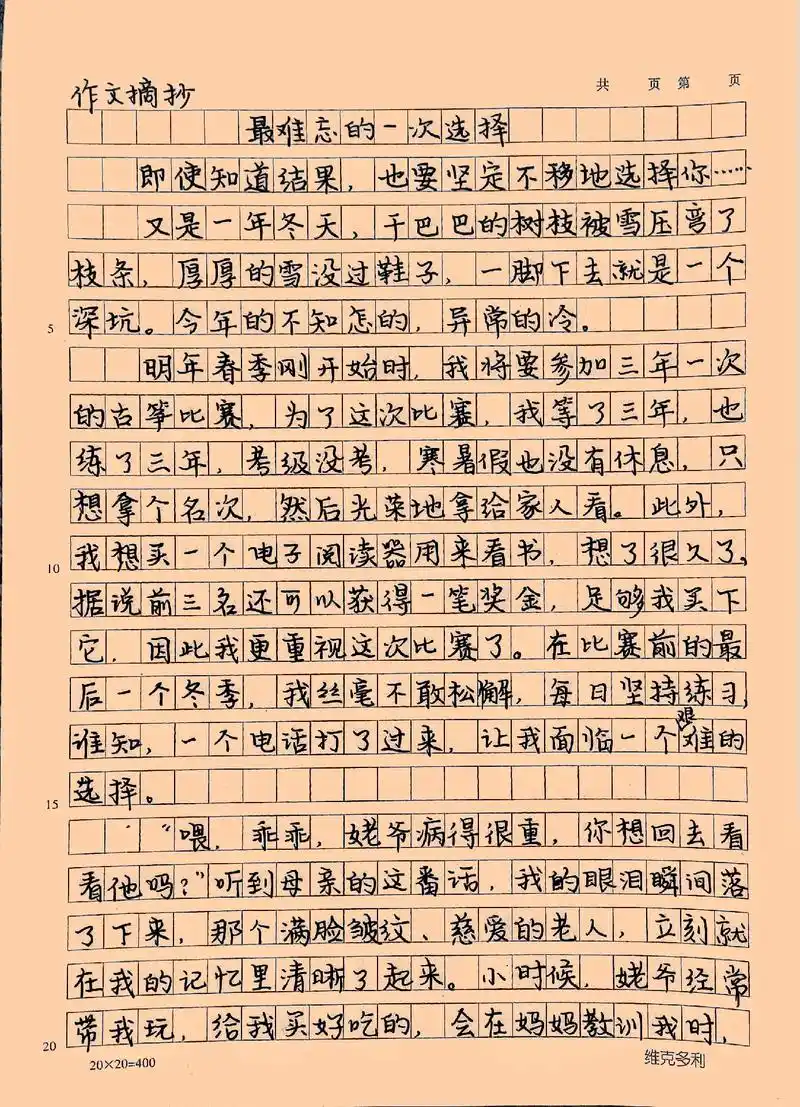 共 页 第 页
作文摘抄
最难忘的一次选择
即使知道结果，也要坚定不移地选择你……
又是一年冬天，干巴巴的树枝被雪压弯了
枝条，厚厚的雪没过鞋子，一脚下去就是一个
5 深坑。今年的不知怎的，异常的冷。
明年春季刚开始时，我将要参加三年一次
的古筝比赛，为了这次比赛，我等了三年，也
练了三年，考级没考，寒暑假也没有休息，只
想拿个名次，然后光荣地拿给家人看。此外，
10 我想买一个电子阅读器用来看书，想了很久了，
据说前三名还可以获得一笔奖金，足够我买下
它，因此我更重视这次比赛了。在比赛前的最
后一个冬季，我丝毫不敢松懈，每日坚持练习，
谁知，一个电话打了过来，让我面临一个艰难的
15 选择。
“喂，乖乖，姥爷病得很重，你想回去看
看他吗？”听到母亲的这番话，我的眼泪瞬间落
了下来，那个满脸皱纹、慈爱的老人，立刻就
在我的记忆里清晰了起来。小时候，姥爷经常
20 带我玩，给我买好吃的，会在妈妈教训我时，
20×20=400 维克多利